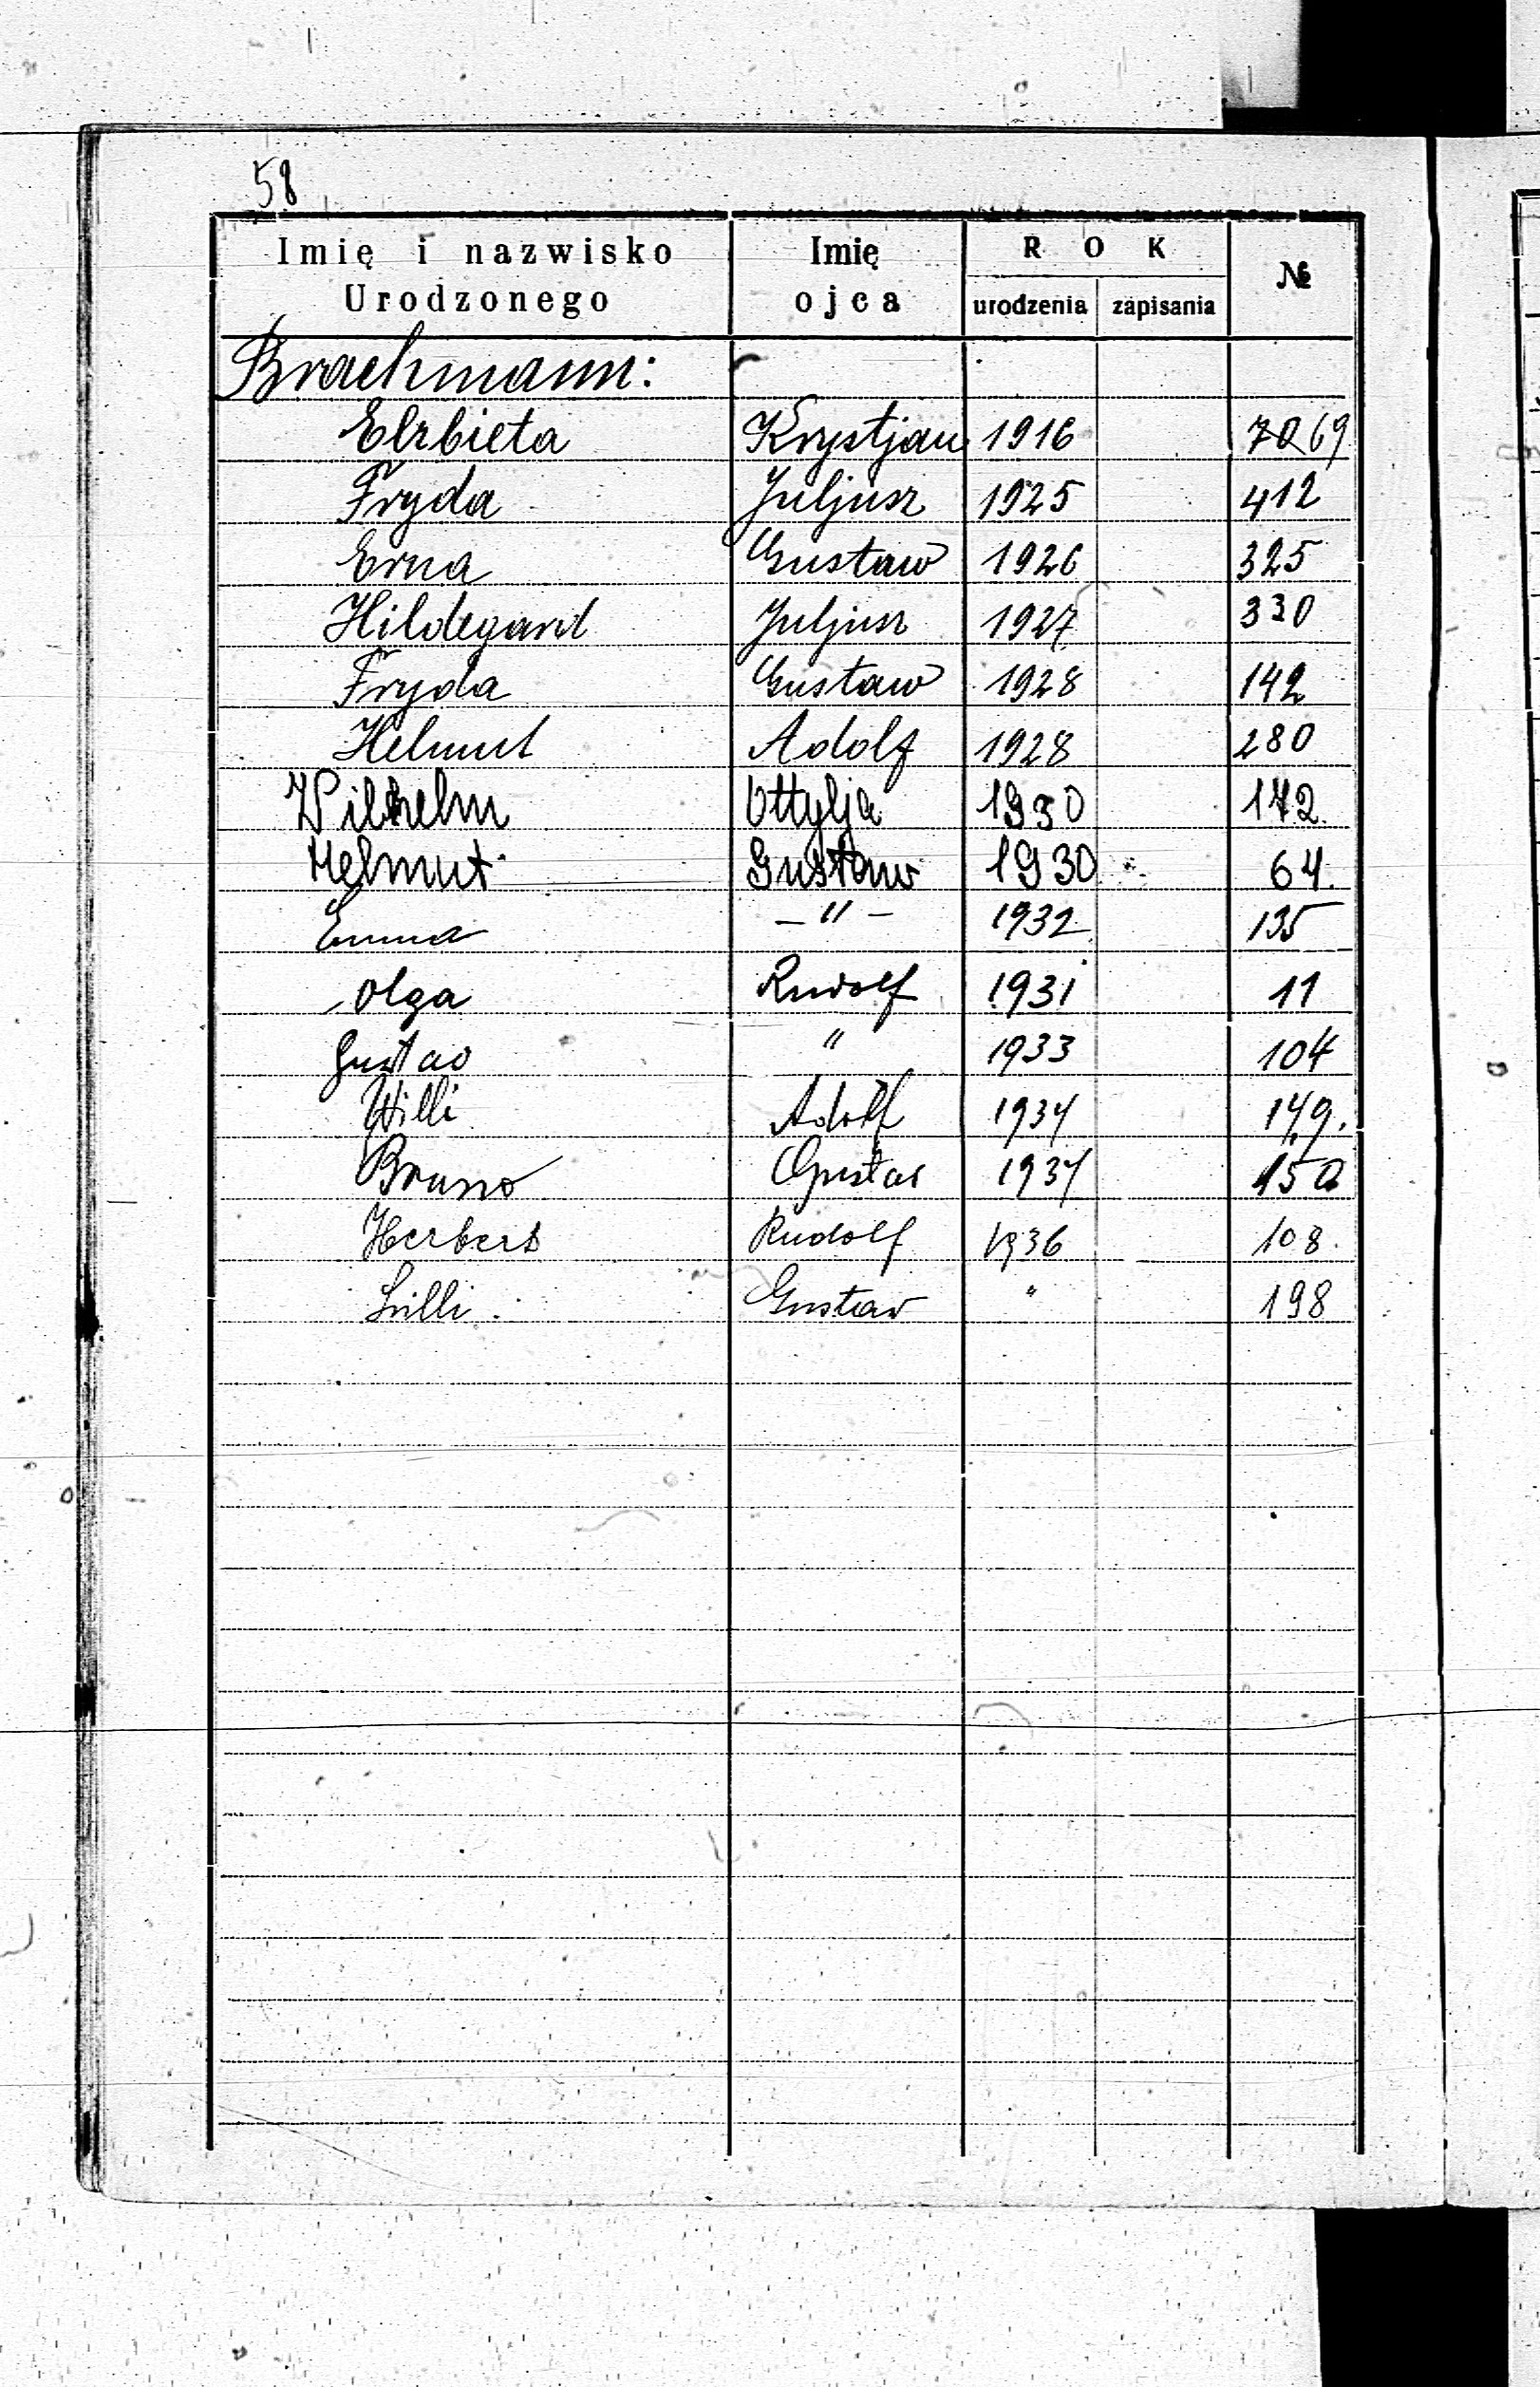 58
Imię i nazwisko Urodzonego | Imię ojca | ROK urodzenia | zapisania | №
Brachmann:
Elzbieta Krystjan 1916 7069
Fryda Juljusz 1925 412
Erna Gustaw 1926 325
Hildegard Juljusz 1927 330
Fryda Gustaw 1928 142
Helmut Adolf 1928 280
Wilhelm Ottylja 1930 172.
Helmut Gustaw 1930 64.
Emma — " — 1932 135
Olga Rudolf 1931 11
Gustav " 1933 104
Willi Adolf 1934 149.
Bruno Gustav 1934 150
Herbert Rudolf 1936 108.
Lilli Gustav " 198